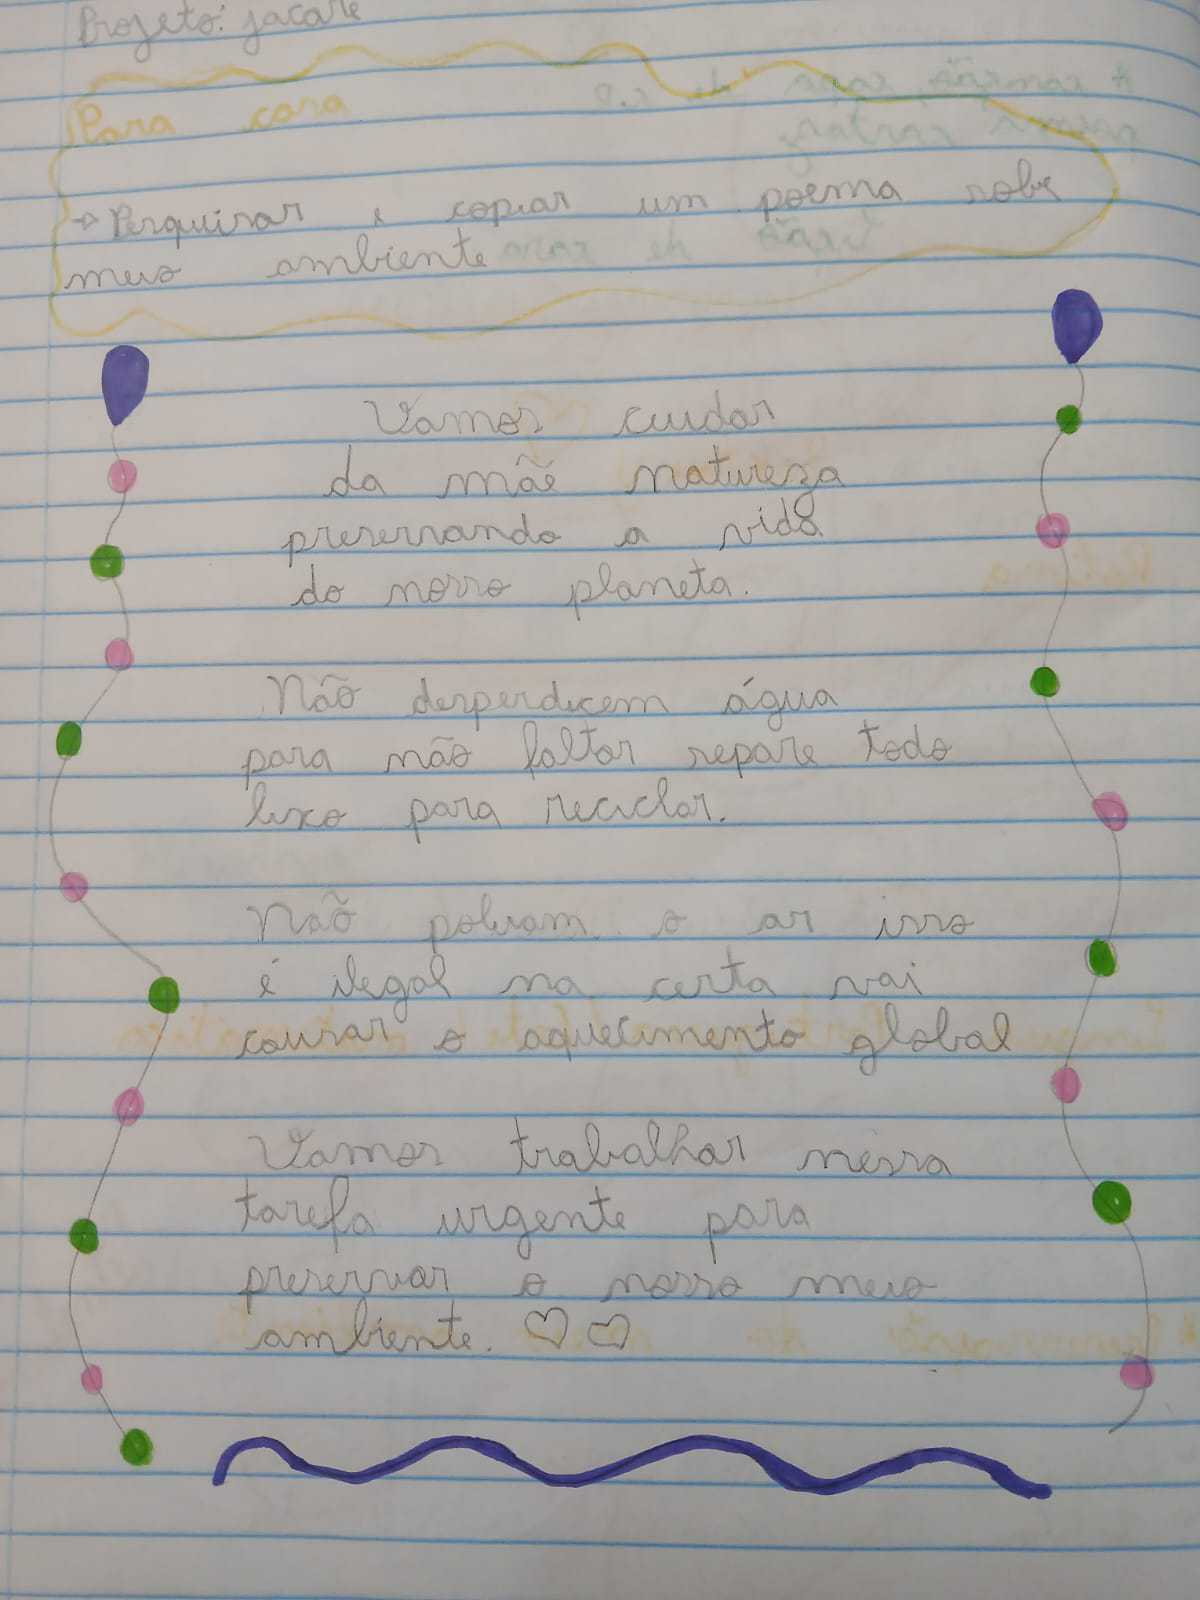 Projeto: jacaré
Para casa
→ Pesquisar e copiar um poema sobre
meio ambiente
Vamos cuidar
da mãe natureza
preservando a vida
do nosso planeta.
Não desperdicem água
para não faltar separe todo
lixo para reciclar.
Não poluam o ar isso
é ilegal na certa vai
causar o aquecimento global
Vamos trabalhar nessa
tarefa urgente para
preservar o nosso meio
ambiente. ♡♡